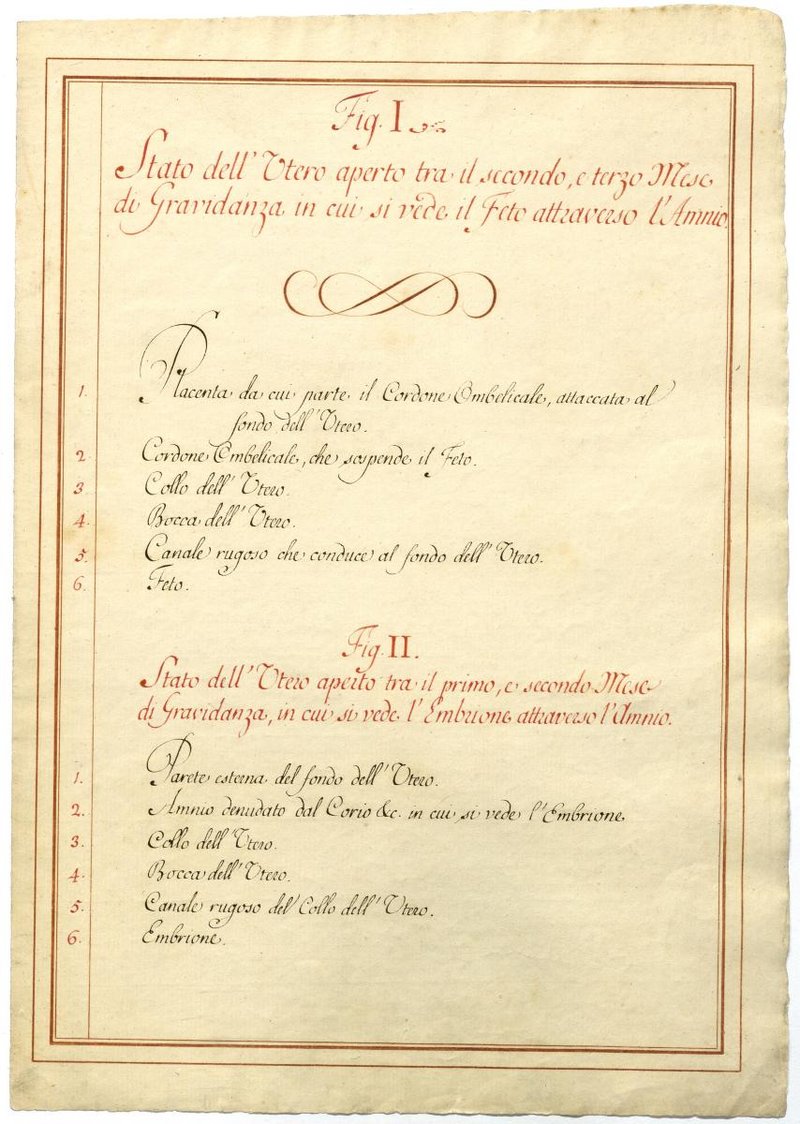 Fig. I
Stato dell' Utero aperto tra il secondo, e terzo Mese
di Gravidanza in cui si vede il Feto attraverso l'Amnio.
1. Placenta da cui parte il Cordone Ombelicale, attaccata al
fondo dell' Utero.
2. Cordone Ombelicale, che sospende il Feto.
3. Collo dell' Utero.
4. Bocca dell' Utero.
5. Canale rugoso che conduce al fondo dell' Utero.
6. Feto.
Fig. II.
Stato dell' Utero aperto tra il primo, e secondo Mese
di Gravidanza, in cui si vede l'Embrione attraverso l'Amnio.
1. Parete esterna del fondo dell' Utero.
2. Amnio denudato dal Corio &c. in cui si vede l'Embrione
3. Collo dell' Utero.
4. Bocca dell' Utero.
5. Canale rugoso del Collo dell' Utero.
6. Embrione.